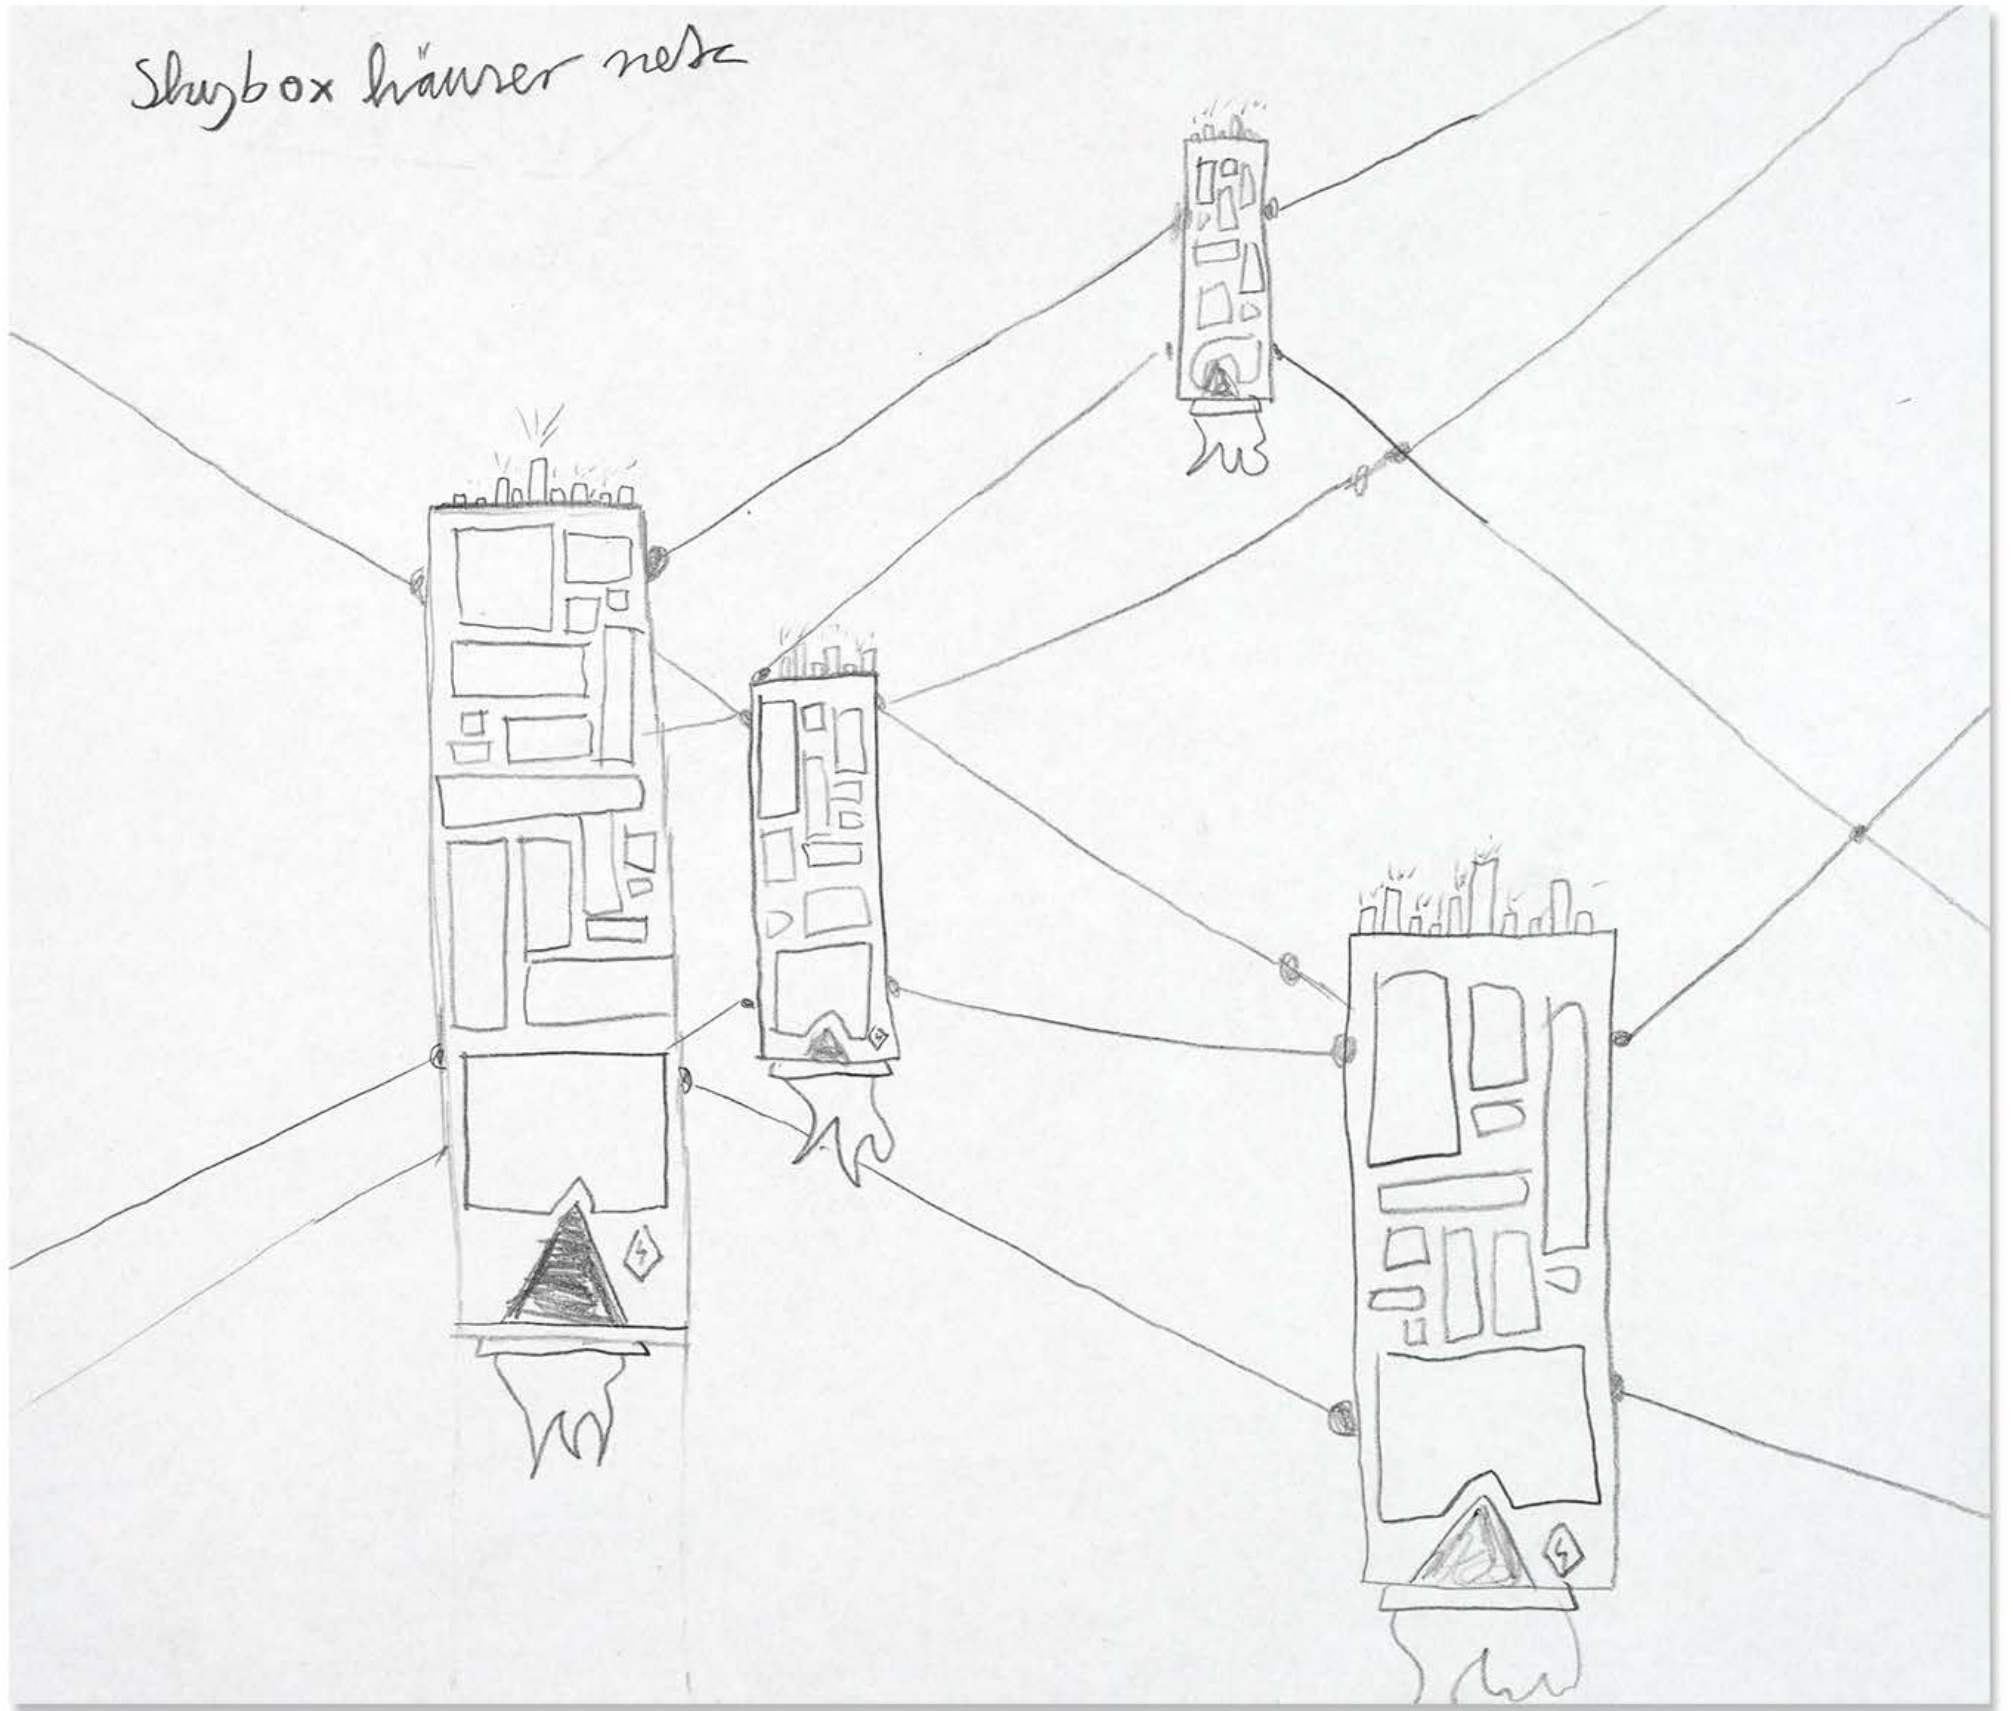 Skybox häuser netz